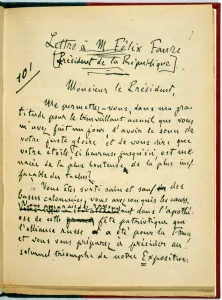 Lettre à M. Félix Faure
Président de la République
10!
Monsieur le Président,
Me permettez-vous, dans ma gra-
titude pour le bienveillant accueil que vous
m'avez fait un jour, d'avoir le souci de
votre juste gloire et de vous dire que
votre étoile, si heureuse jusqu'ici, est me-
nacée de la plus honteuse, de la plus inef-
façable des taches?
Vous êtes sorti sain et sauf des
basses calomnies, vous avez conquis les cœurs.
dans l'apothé-
ose de cette fête patriotique que
l'alliance russe a été pour la France
et vous vous préparez à présider au
solennel triomphe de notre Exposition